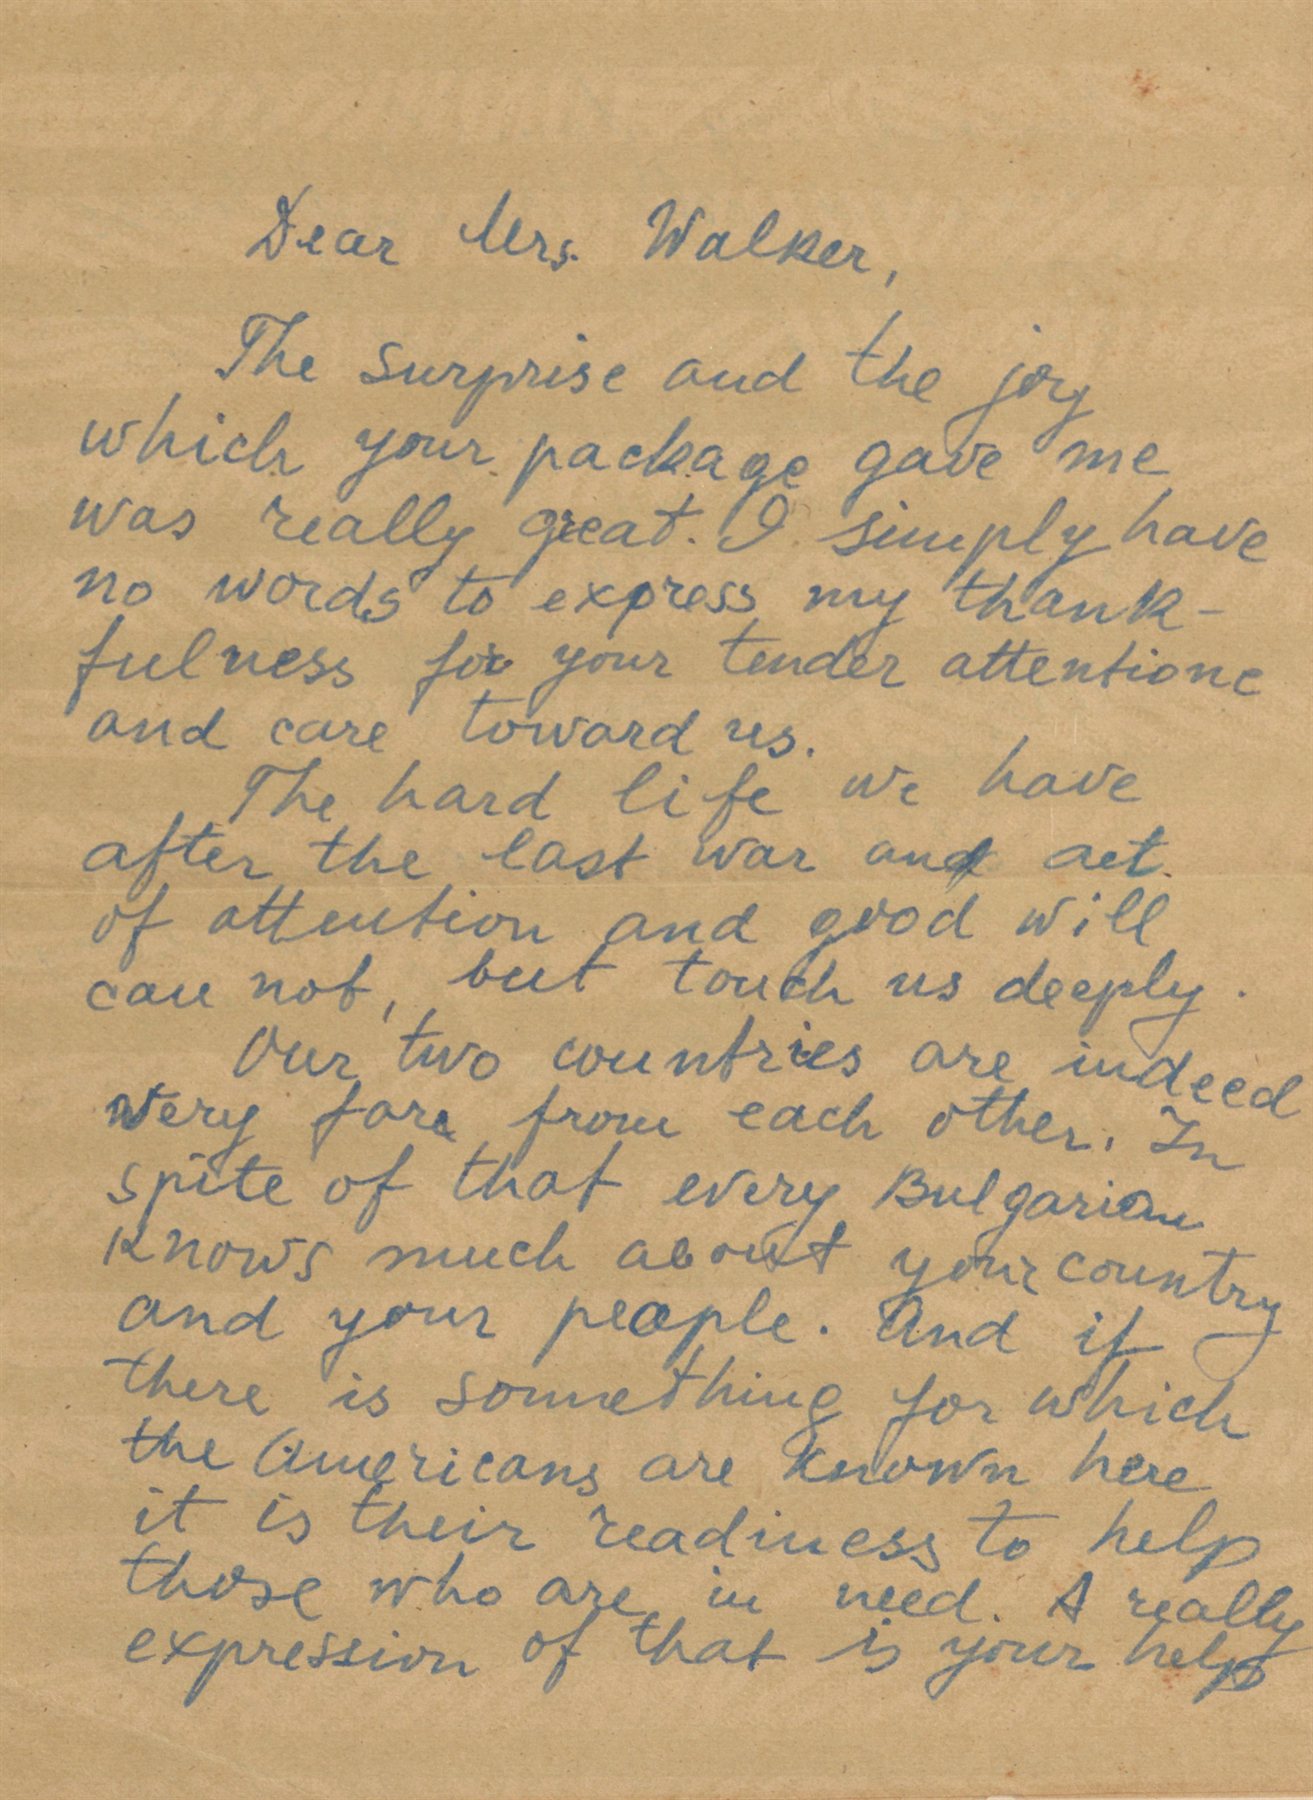 Dear Mrs. Walker,
The surprise and the joy
which your package gave me
was really great. I simply have
no words to express my thank-
fulness for your tender attentione
and care toward us.
The hard life we have
after the last war and act.
of attention and good will
can not, but touch us deeply.
Our two countries are indeed
very fare from each other. In
spite of that every Bulgarian
knows much about your country
and your people. And if
there is something for which
the Americans are known here
it is their readiness to help
those who are in need. A really
expression of that is your help